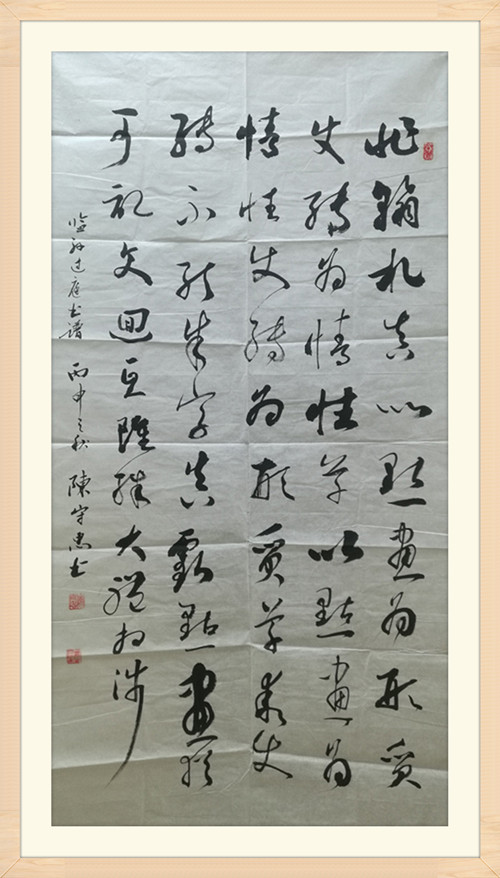 非翰札真以點畫為形質
使轉為情性草以點畫為
情性使轉為形質草乖使
轉不能成字真虧點畫猶
可記文迴互雖殊大體相涉
臨孫過庭書譜 丙申之秋 陳守忠書